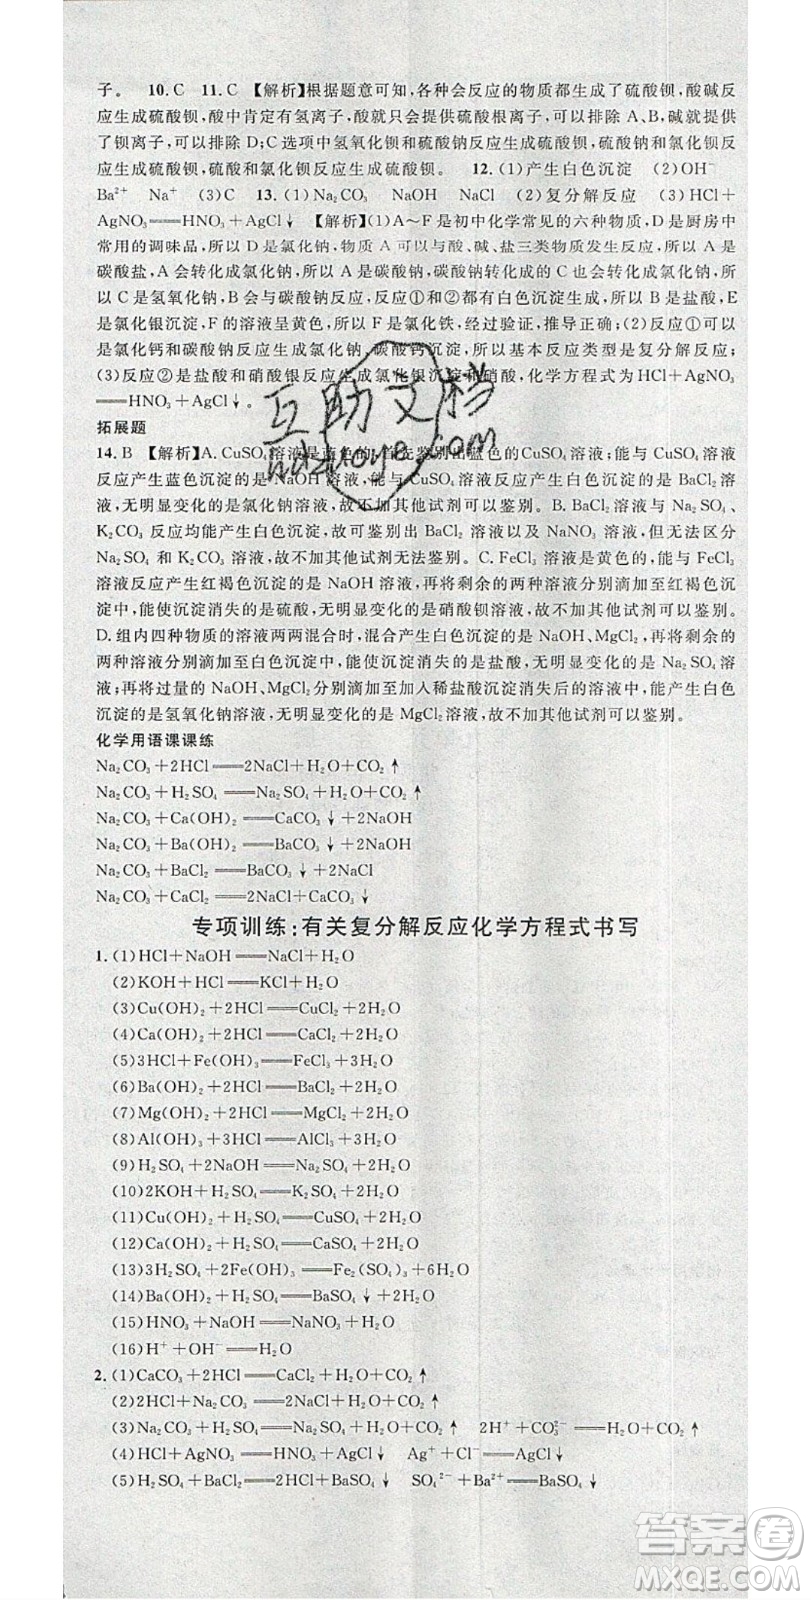 子。 10. C 11. C 【解析】根据题意可知,各种会反应的物质都生成了硫酸钡,酸碱反
应生成硫酸钡,酸中肯定有氢离子,酸就只会提供硫酸根离子,可以排除 A、B,碱就提供
了钡离子,可以排除 D;C 选项中氢氧化钡和硫酸钠反应生成硫酸钡,硫酸钠和氯化钡反
应生成硫酸钡,硫酸和氯化钡反应生成硫酸钡。 12. (1)产生白色沉淀 (2)OH⁻
Ba²⁺ Na⁺ (3)C 13. (1)Na₂CO₃ NaOH NaCl (2)复分解反应 (3)HCl+
AgNO₃══HNO₃+AgCl↓ 【解析】(1)A~F 是初中化学常见的六种物质,D 是厨房中
常用的调味品,所以 D 是氯化钠,物质 A 可以与酸、碱、盐三类物质发生反应,所以 A 是
碳酸盐,A 会转化成氯化钠,所以 A 是碳酸钠,碳酸钠转化成的 C 也会转化成氯化钠,所
以 C 是氢氧化钠,B 会与碳酸钠反应,反应①和②都有白色沉淀生成,所以 B 是盐酸,E
是氯化银沉淀,F 的溶液呈黄色,所以 F 是氯化铁,经过验证,推导正确;(2)反应①可以
是氯化钙和碳酸钠反应生成氯化钠、碳酸钙沉淀,所以基本反应类型是复分解反应;
(3)反应②是盐酸和硝酸银反应生成氯化银沉淀和硝酸,化学方程式为 HCl+AgNO₃
══HNO₃+AgCl↓。
拓展题
14. B 【解析】A. CuSO₄ 溶液是蓝色的,首先鉴别出蓝色的 CuSO₄ 溶液;能与 CuSO₄ 溶液
反应产生蓝色沉淀的是 NaOH 溶液,再将剩余的两种溶液分别滴加 CuSO₄ 溶液,能使沉淀溶解的是稀盐酸
液,无明显变化的是氯化钠溶液,故不加其他试剂可以鉴别。B. BaCl₂ 溶液能与 Na₂SO₄、
K₂CO₃ 反应均能产生白色沉淀,故可鉴别出 BaCl₂ 溶液以及 NaNO₃ 溶液,但无法区分
Na₂SO₄ 和 K₂CO₃ 溶液,故不加其他试剂无法鉴别。C. FeCl₃ 溶液是黄色的,能与 FeCl₃
溶液反应产生红褐色沉淀的是 NaOH 溶液,再将剩余的两种溶液分别滴加到红褐色沉
淀中,能使沉淀消失的是硫酸,无明显变化的是硝酸钡溶液,故不加其他试剂可以鉴别。
D. 组内四种物质的溶液两两混合时,混合产生白色沉淀的是 NaOH、MgCl₂,再将剩余的
两种溶液分别滴加入白色沉淀中,能使沉淀消失的是盐酸,无明显变化的是 Na₂SO₄ 溶
液;再将过量的 NaOH、MgCl₂ 分别滴加至加入稀盐酸沉淀消失后的溶液中,能产生白色
沉淀的是氢氧化钠溶液,无明显变化的是 MgCl₂ 溶液,故不加其他试剂可以鉴别。
化学用语课课练
Na₂CO₃+2HCl══2NaCl+H₂O+CO₂↑
Na₂CO₃+H₂SO₄══Na₂SO₄+H₂O+CO₂↑
Na₂CO₃+Ca(OH)₂══CaCO₃↓+2NaOH
Na₂CO₃+Ba(OH)₂══BaCO₃↓+2NaOH
Na₂CO₃+BaCl₂══BaCO₃↓+2NaCl
Na₂CO₃+CaCl₂══2NaCl+CaCO₃↓
专项训练:有关复分解反应化学方程式书写
1. (1)HCl+NaOH══NaCl+H₂O
(2)KOH+HCl══KCl+H₂O
(3)Cu(OH)₂+2HCl══CuCl₂+2H₂O
(4)Ca(OH)₂+2HCl══CaCl₂+2H₂O
(5)3HCl+Fe(OH)₃══FeCl₃+3H₂O
(6)Ba(OH)₂+2HCl══BaCl₂+2H₂O
(7)Mg(OH)₂+2HCl══MgCl₂+2H₂O
(8)Al(OH)₃+3HCl══AlCl₃+3H₂O
(9)H₂SO₄+2NaOH══Na₂SO₄+2H₂O
(10)2KOH+H₂SO₄══K₂SO₄+2H₂O
(11)Cu(OH)₂+H₂SO₄══CuSO₄+2H₂O
(12)Ca(OH)₂+H₂SO₄══CaSO₄+2H₂O
(13)3H₂SO₄+2Fe(OH)₃══Fe₂(SO₄)₃+6H₂O
(14)Ba(OH)₂+H₂SO₄══BaSO₄↓+2H₂O
(15)HNO₃+NaOH══NaNO₃+H₂O
(16)H⁺+OH⁻══H₂O
2. (1)CaCO₃+2HCl══CaCl₂+H₂O+CO₂↑
(2)2HCl+Na₂CO₃══2NaCl+H₂O+CO₂↑
(3)Na₂CO₃+H₂SO₄══Na₂SO₄+H₂O+CO₂↑ 2H⁺+CO₃²⁻══H₂O+CO₂↑
(4)HCl+AgNO₃══HNO₃+AgCl↓ Ag⁺+Cl⁻══AgCl↓
(5)H₂SO₄+BaCl₂══2HCl+BaSO₄↓ SO₄²⁻+Ba²⁺══BaSO₄↓
互助文档
hdzuoye.com
答案圈
MXQE.COM